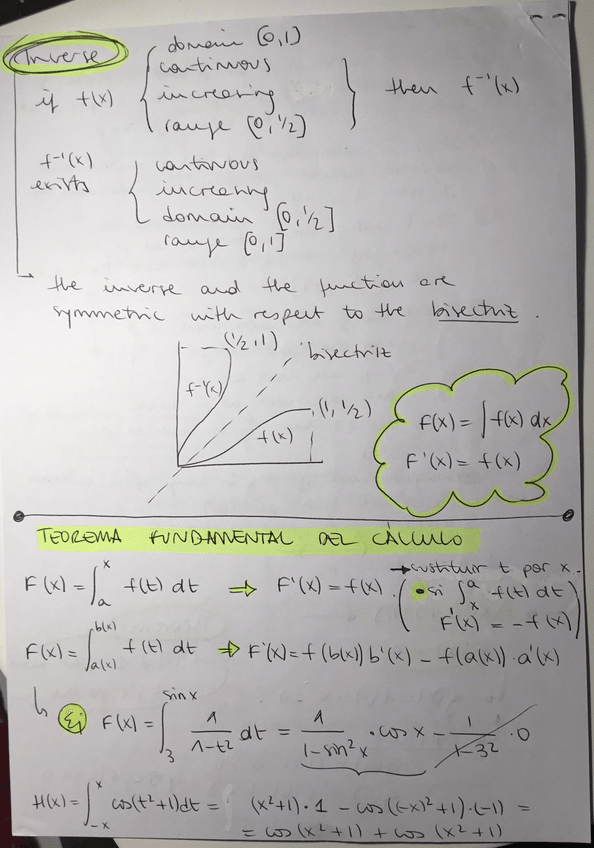 Inverse
if f(x) { domain [0,1] continuous increasing range [0,1/2] } then f⁻¹(x)
f⁻¹(x) exists { continuous increasing domain [0,1/2] range [0,1]
the inverse and the function are
symmetric with respect to the bisectriz.
(1/2,1) bisectriz
f⁻¹(x)
(1,1/2)
f(x)
F(x) = ∫ f(x) dx
F'(x) = f(x)
TEOREMA FUNDAMENTAL DEL CÁLCULO
F(x) = ∫ₐˣ f(t) dt ⇒ F'(x) = f(x). → sustituir t por x.
(• si ∫ₓᵃ f(t) dt) F'(x) = -f(x)
F(x) = ∫_{a(x)}^{b(x)} f(t) dt ⇒ F'(x) = f(b(x)) b'(x) - f(a(x)) · a'(x)
↳ Ej F(x) = ∫₃^{sin x} 1/(1-t²) dt = 1/(1-sin²x) · cos x - 1/(1-3²) · 0
H(x) = ∫_{-x}^{x} cos(t²+1)dt = (x²+1) · 1 - cos((-x)²+1) · (-1) =
= cos(x²+1) + cos(x²+1)